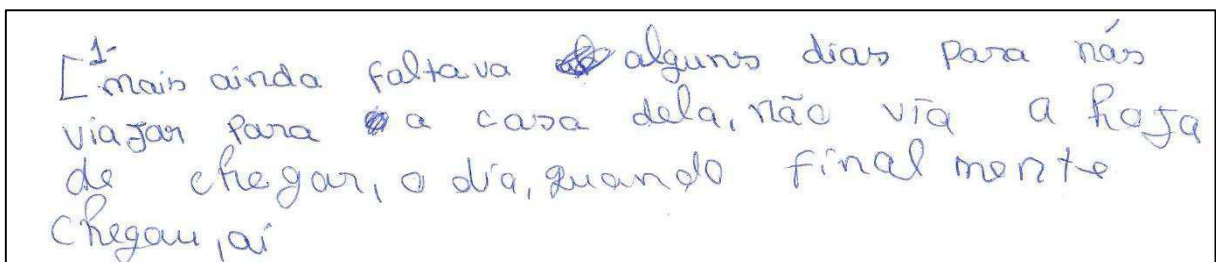 [1- mais ainda faltava alguns dias para nós
viajar para a casa dela, não via a hoja
de chegar, o dia, quando final mente
chegou, aí